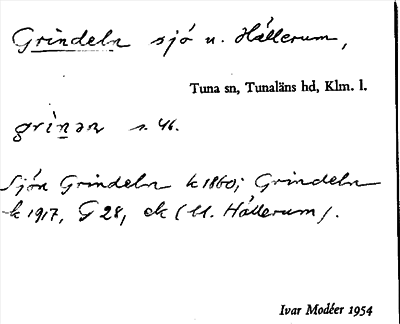 Grindeln sjö u. Hällerum,
Tuna sn, Tunaläns hd, Klm. l.
grìn̲ən s. 46.
Sjön Grindeln k 1860; Grindeln
k 1917, G 28, ek (U. Hällerum).
Ivar Modéer 1954